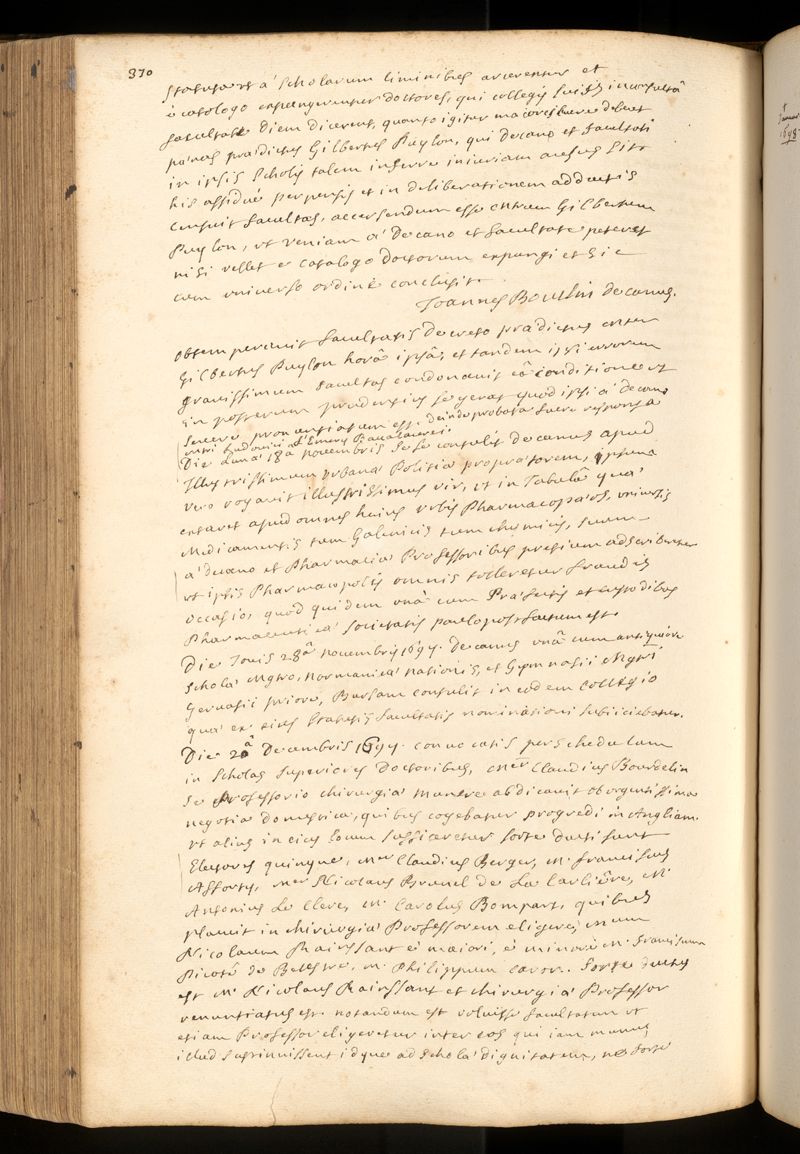 370
statuto ut a scholarum liminibus arcerentur et
è catalogo expungerentur doctores, qui collegis suis inconsultâ
facultate diem dicerent, quanto igitur maiores luere debeat
pœnas prædictus Gilbertus Puylon, qui decano et facultati
in ipsis scholis talem inferre iniuriam ausus sit
his assidué perpensis et in deliberationem adductis
censuit facultas, accersendum esse Gilbertum
Puylon, ut veniam a decano et facultate peteret
nisi vellet e catalogo doctorum expungi et sic
cum universo ordine conclusit.
Joannes Boudin decanus.
obtemperavit facultatis decreto prædictus
Gilbertus Puylon horâ ipsâ, et tandem ipsi errorem
gravissimum facultas condonavit eâ conditione ut
in posterum prudentius se gerat quod ipsi a decano
severe pronuntiatum est. deinde probata fuere responsa
Ludovici d'Emery Baccalaurei.
Die Lunæ 18â novembris sese contulit decanus apud
Illustrissimum urbanæ Politiæ proprætorem, ipsum
vero rogavit illustrissimus vir, ut in Tabulâ quæ
extaret apud omnes huius urbis Pharmacopæos, universis
Medicamentis tam Galenicis tam chymicis, suum
a decano et Pharmaciæ Professoribus pretium adscriberetur
ut ipsis Pharmacopolis omnis tolleretur fraudis
occasio, quod quidem unâ cum Præfectis et custodibus
Pharmaceuticæ societatis paulo post factum est.
Die Jovis 28â novembris 1697. decanus unâ cum antiquiore
scholæ Mgro, Normanicæ nationis, et Gymnasii Mgri
Gervasii priore, Bursam contulit in eodem collegio
quæ ex eius statutis facultatis nominationi subiiciebatur.
Die 2â decembris 1697. convocatis per schedulam
in scholas superiores doctoribus, Mer Claudius Bourdelin
se Professorio chirurgiæ munere abdicavit ob urgentissima
negotia domestica, quibus cogebatur progredi in Angliam.
ut alius in eius locum sufficeretur sorte ducti sunt
Electores quinque, Mer Claudius Berger, M. Franciscus
Afforty, Mer Nicolaus Bruuel de la Carliêre, M.
Antonius Le Clerc, M. Carolus Bompart, quibus
placuit in chirurgiæ Professorem eligere, Mum
Nicolaum Rainssant è maiori, è minore M. Franciscum
Picoté de Belestre, M. Philippum Caron. sorte ductus
est M. Nicolaus Rainssant et chirurgiæ Professor
renuntiatus est. notandum est voluisse facultatem ut
etiam Professor eligeretur inter eos qui iam munus
illud sustinuissent idque ad scholæ dignitatem, ne forte
1698